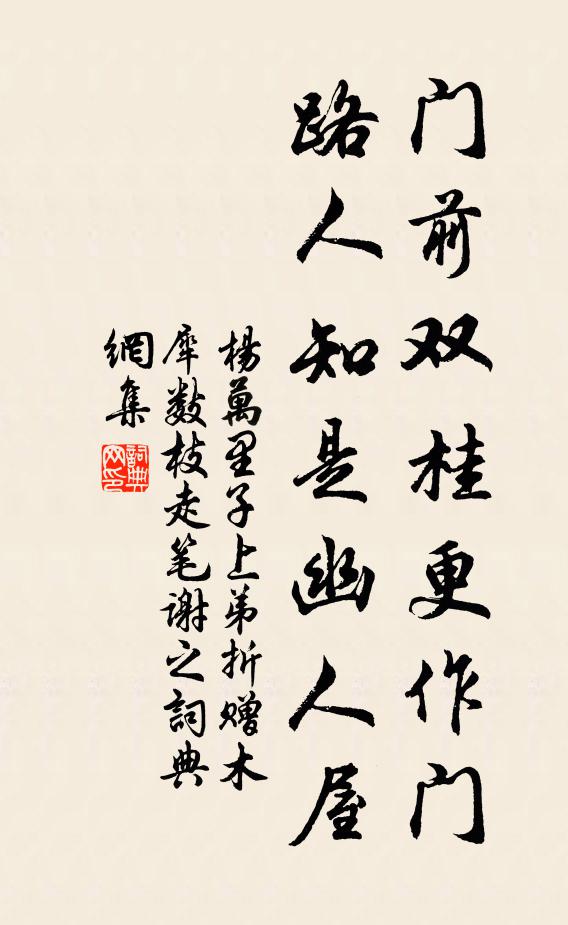 门前双桂更作门
路人知是幽人屋
楊萬里子上弟折赠木
犀数枝走笔谢之詞典
網集
詞典网印